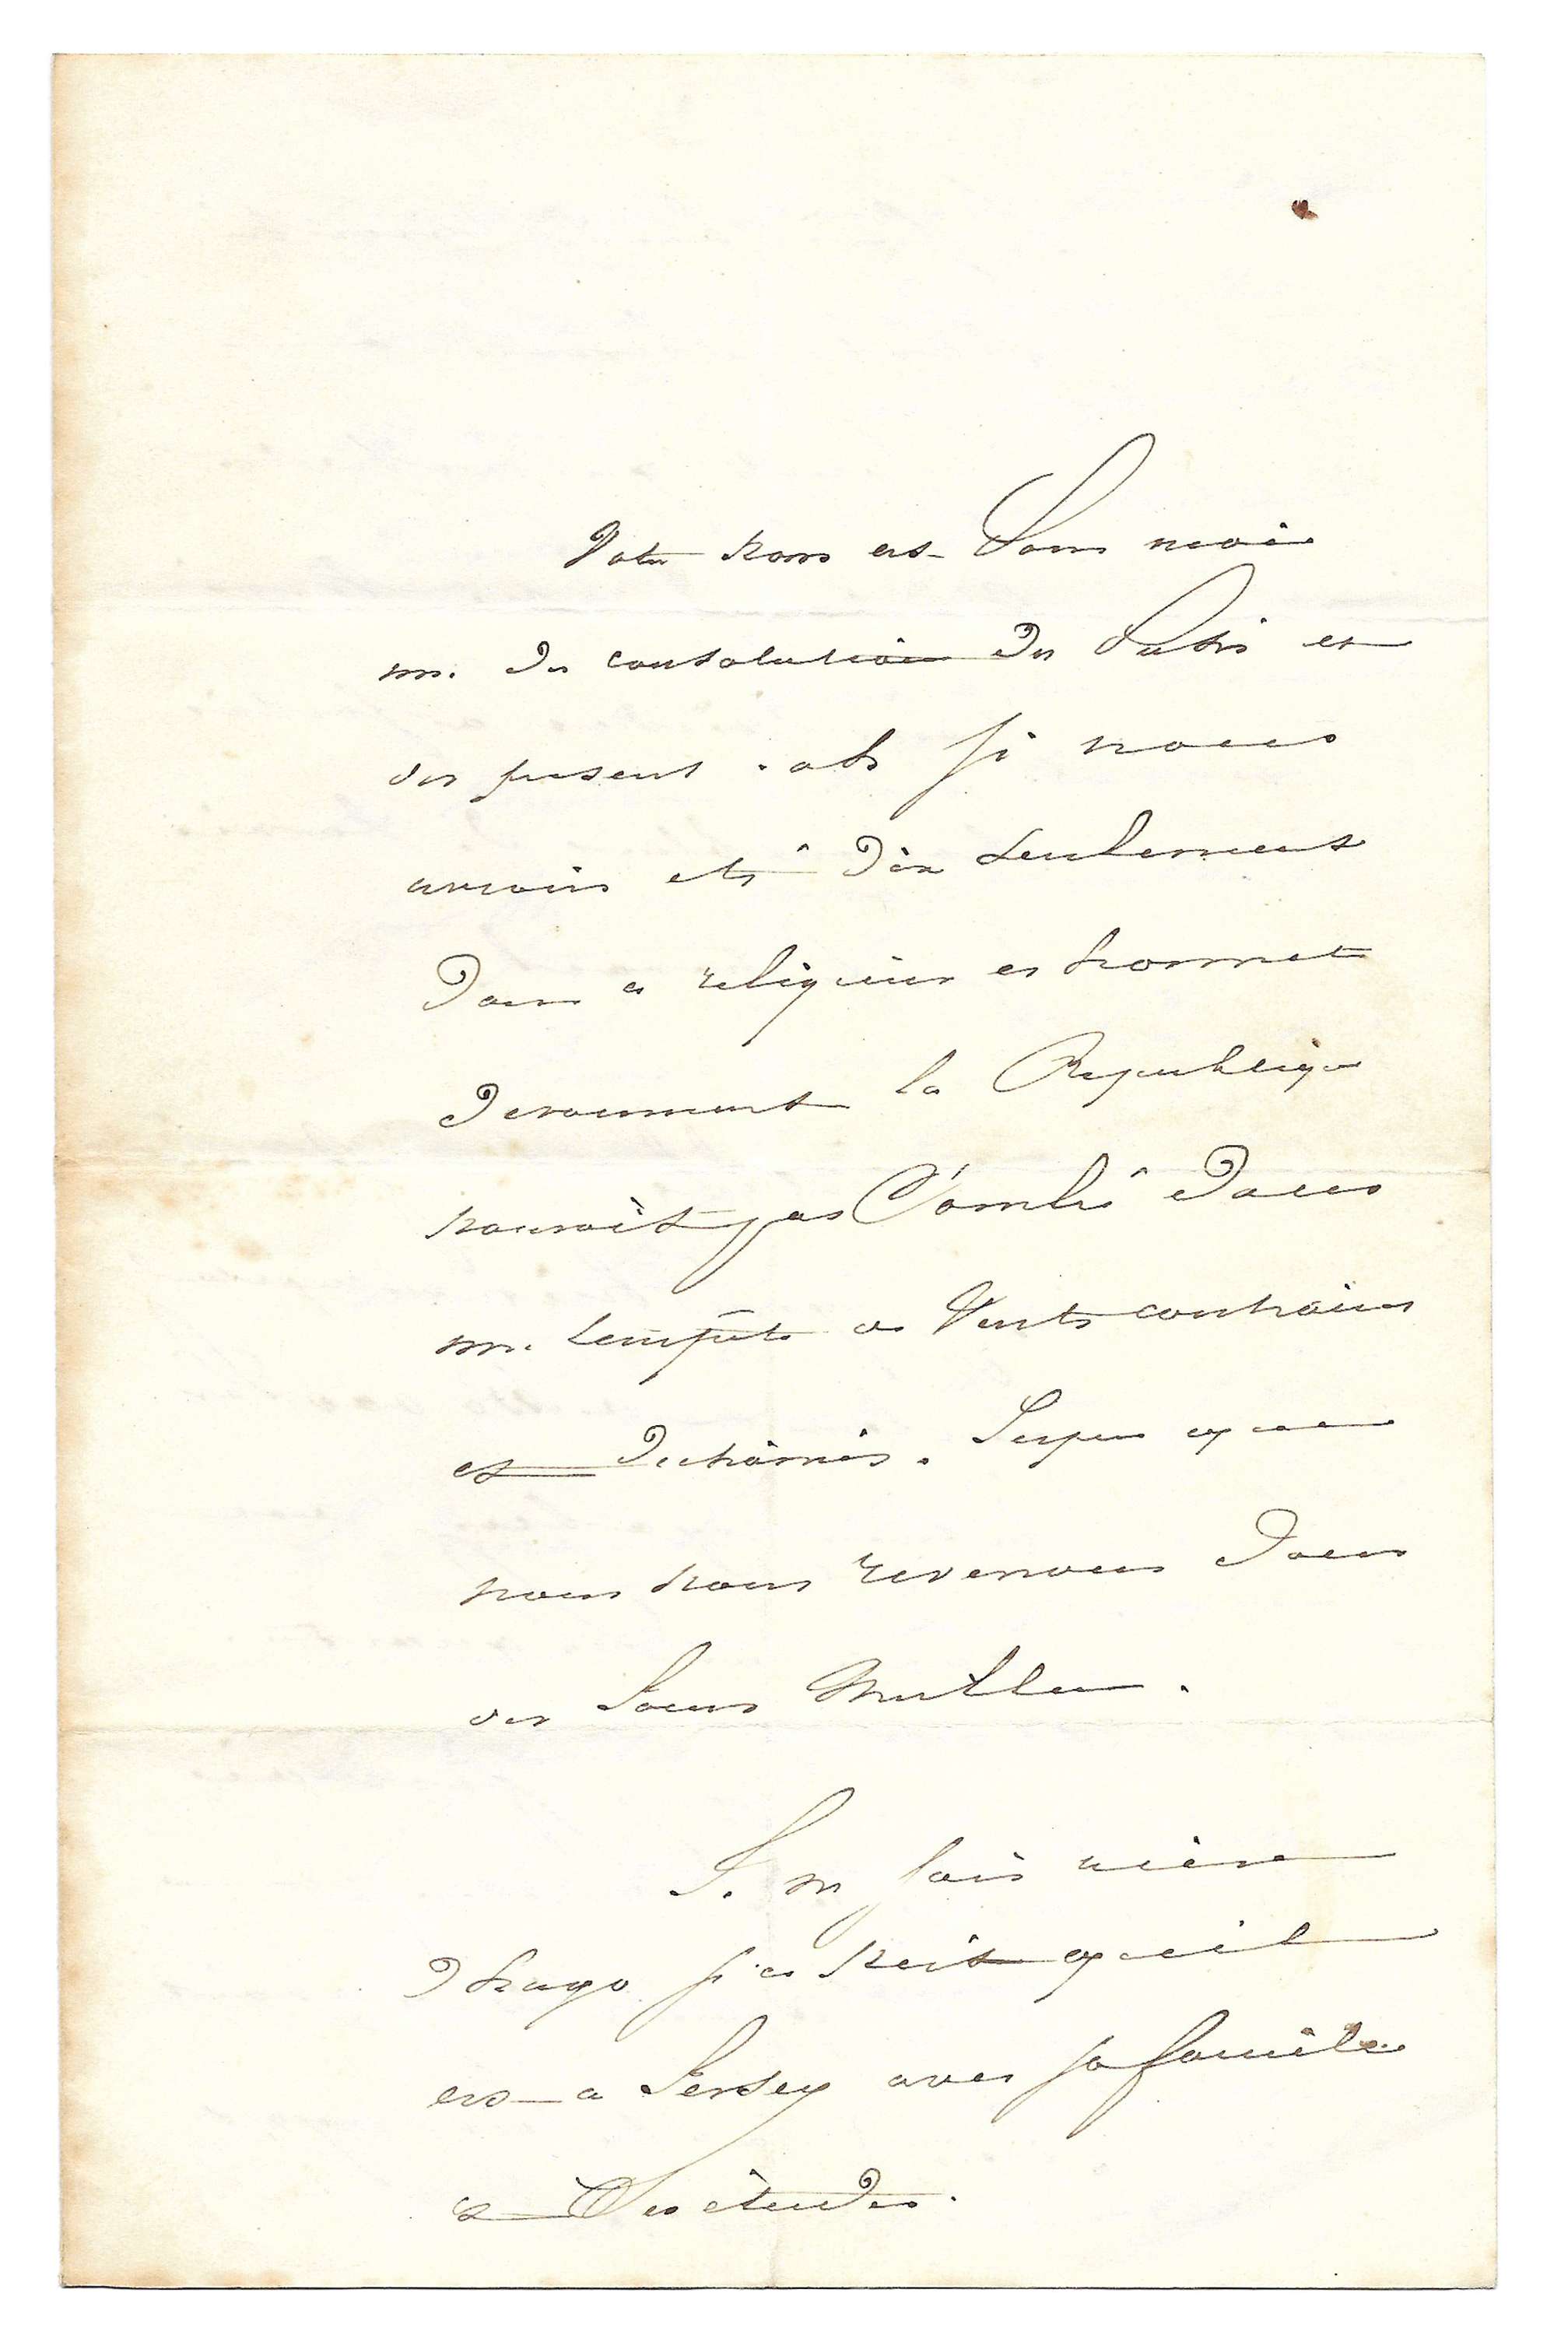 Votre nom est pour moi
une des consolations du Passé et
du present. ah si nous
avions eté dix seulement
Dans ce religieux et honnete
Devouement la Republique
n'auroit pas Sombré Dans
une tempête de Vents contraires
et Dechainés. J'espere que
nous nous reverrons Dans
des Jours meilleurs.
Je ne sais rien
D hugo si ce n'est qu'il
est a Jersey avec sa famille
et Ses études.